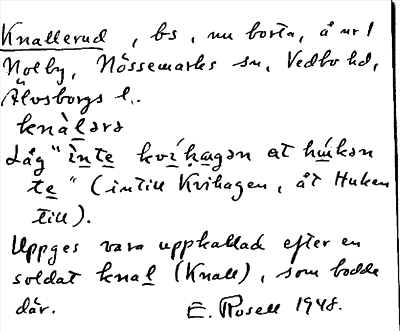 Knallerud, bs, nu borta, å nr 1
Nolby, Nössemarks sn, Vedbo hd,
Älvsborgs l.
knàlərə
Låg "ìnte kvíhagən at húkən
te" (intill Kvihagen, åt Huken
till).
Uppges vara uppkallad efter en
soldat knal (Knall), som bodde
där. E. Rosell 1948.